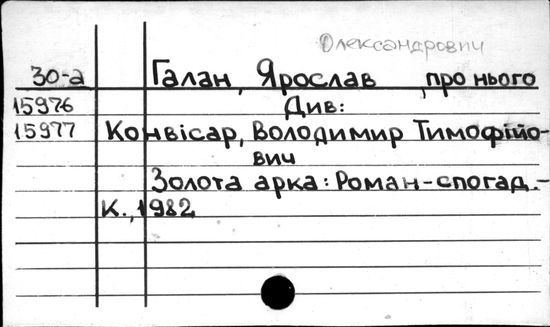 Олександрович
30-а Галан, Ярослав, про нього
15976 Див:
15977 Конвісар, Володимир Тимофійо-
вич
Золота арка: Роман-спогад.-
К., 1982